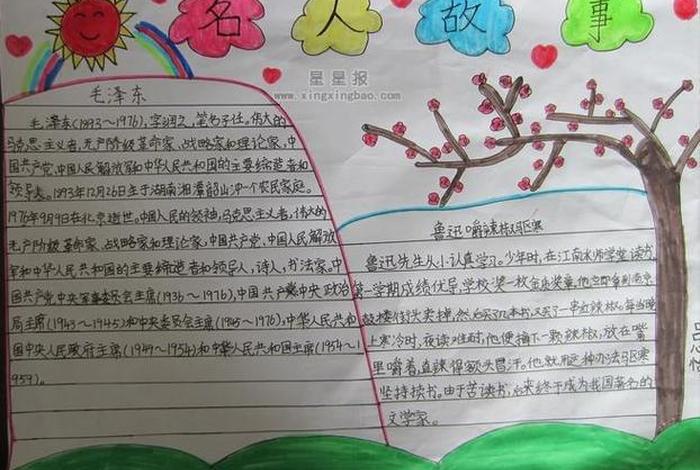 名人故事
星星报
www.xingxingbao.com
毛泽东
毛泽东(1893～1976),字润之,笔名子任。伟大的
马克思主义者,无产阶级革命家、战略家和理论家,中
国共产党,中国人民解放军和中华人民共和国的主要缔造者和
领导人。1893年12月26日生于湖南湘潭韶山冲一个农民家庭。
1976年9月9日在北京逝世。中国人民的领袖,马克思主义者,伟大的
无产阶级革命家、战略家和理论家,中国共产党、中国人民解放
军和中华人民共和国的主要缔造者和领导人,诗人,书法家。中
国共产党中央军事委员会主席(1936～1976),中国共产党中央政治
局主席(1943～1945)和中央委员会主席(1945～1976),中华人民共和
国中央人民政府主席(1949～1954)和中华人民共和国主席(1954～1
959)。
鲁迅嚼辣椒驱寒
鲁迅先生从小认真学习。少年时,在江南水师学堂读书
第一学期成绩优异,学校奖一枚金质奖章,他立即拿到南京
鼓楼街头卖掉,然后买了几本书,又买了一串红辣椒。每当晚
上寒冷时,夜读难耐,他便摘下一颗辣椒,放在嘴
里嚼着,直辣得额头冒汗。他就用这种办法驱寒
坚持读书。由于苦读书,后来终于成为我国著名的
文学家。